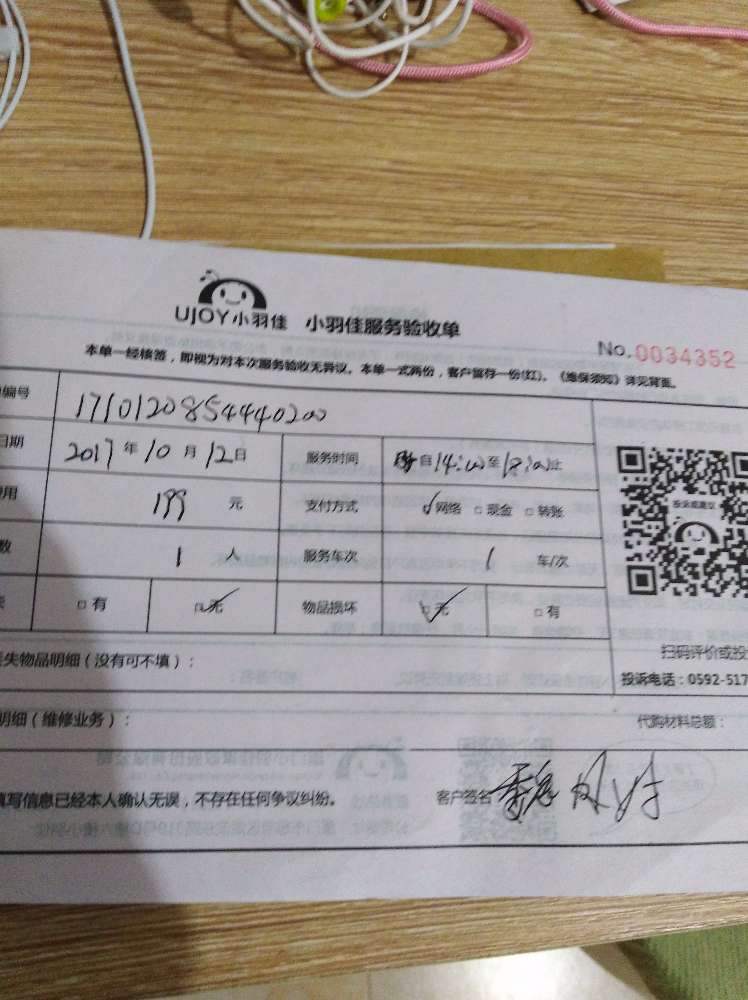 UJOY小羽佳 小羽佳服务验收单
No.0034352
本单一经核签，即视为对本次服务验收无异议。本单一式两份，客户留存一份(红)。《维保须知》详见背面。
编号 1710120854440200
日期 2017年10月12日 服务时间 自14:00至18:00止
用 199 元 支付方式 网络 现金 转账
数 1 人 服务车次 1 车/次
有 无 物品损坏 无 有
投诉或建议
扫码评价或投
失物品明细（没有可不填）：
投诉电话：0592-517
明细（维修业务）：
代购材料总额：
填写信息已经本人确认无误，不存在任何争议纠纷。
客户签名